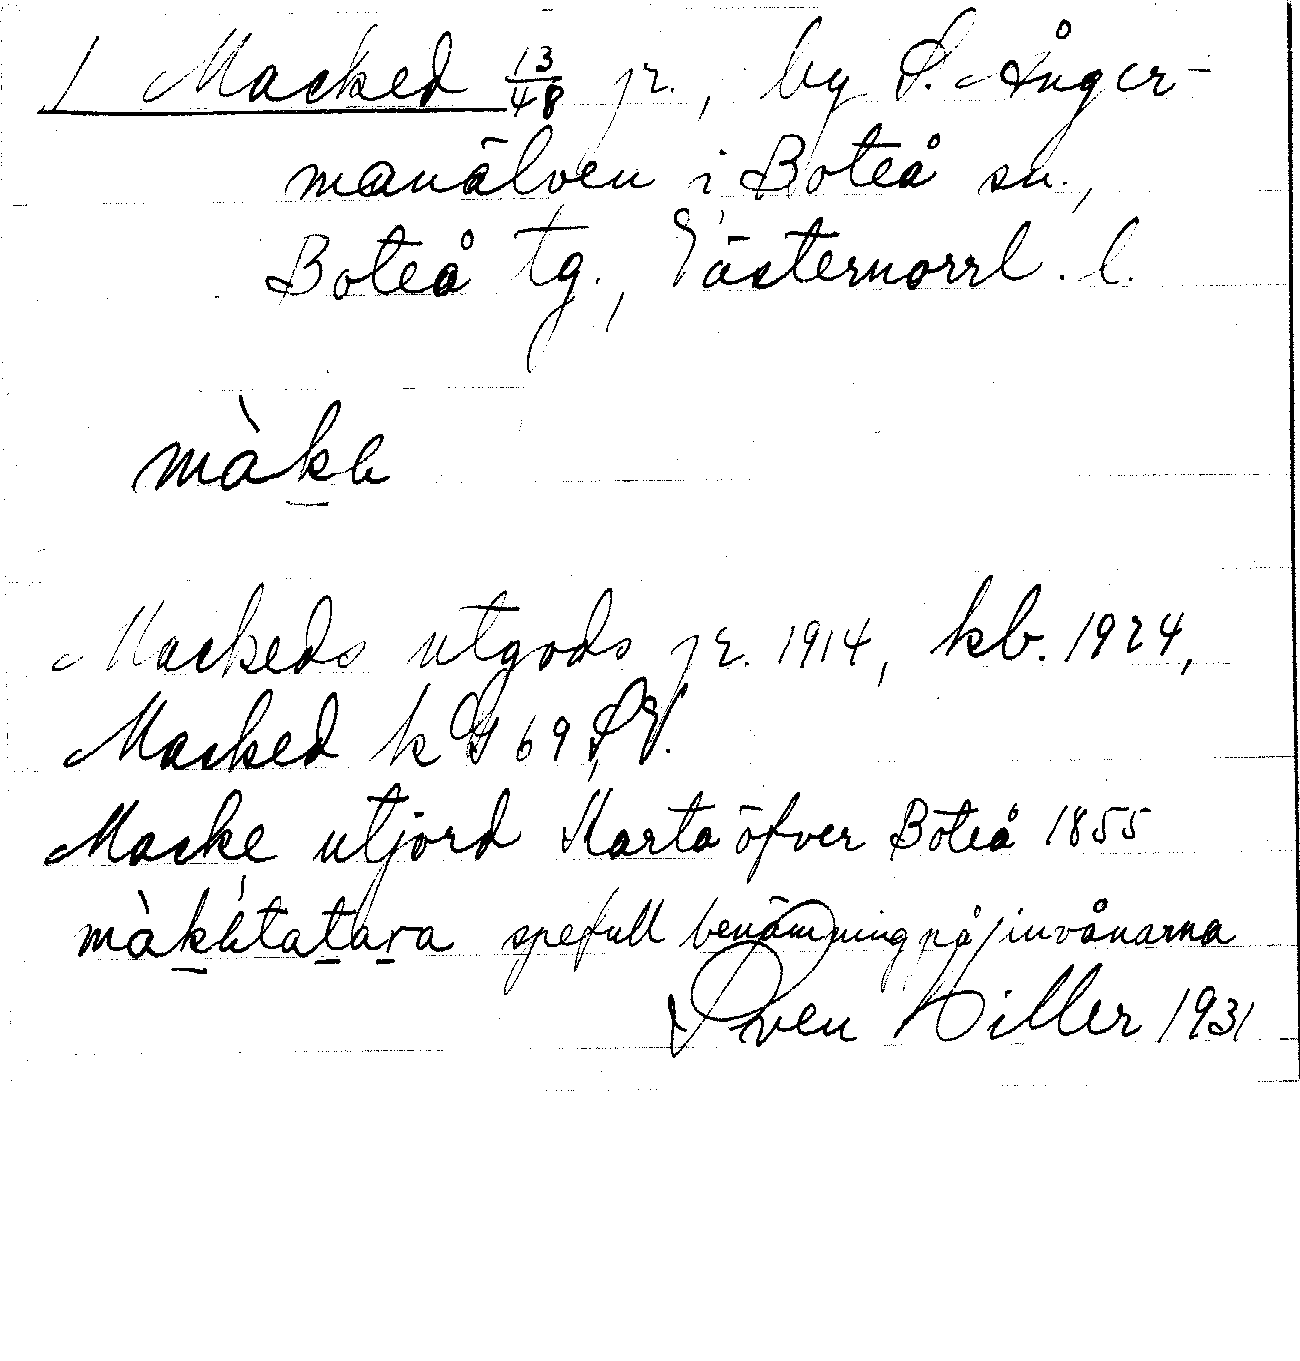 1 Macked 13/48 jr., by S. Ånger-
manälven i Boteå sn.,
Boteå tg., Västernorrl. l.
màkɐ
Mackeds utgods jr. 1914, kb. 1924,
Macked k G 69, SV.
Macke utjord Karta öfver Boteå 1855
màkɐ́tatara spefull benämning på invånarna
Sven Hiller 1931